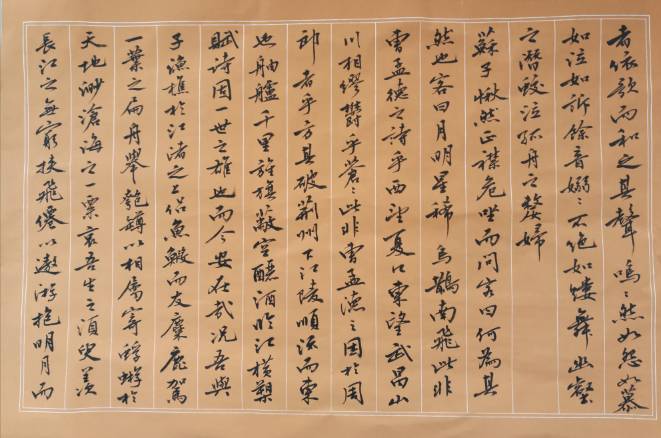 者依歌而和之其聲嗚々然如怨如慕
如泣如訴餘音嫋々不絕如縷舞幽壑
之潛蛟泣孤舟之嫠婦
蘇子愀然正襟危坐而問客曰何為其
然也客曰月明星稀烏鵲南飛此非
曹孟德之詩乎西望夏口東望武昌山
川相繆鬱乎蒼々此非曹孟德之困於周
郎者乎方其破荊州下江陵順流而東
也舳艫千里旌旗蔽空釃酒臨江橫槊
賦詩固一世之雄也而今安在哉況吾與
子漁樵於江渚之上侶魚鰕而友麋鹿駕
一葉之扁舟舉匏罇以相屬寄蜉蝣於
天地渺滄海之一粟哀吾生之須臾羨
長江之無窮挾飛僊以遨游抱明月而